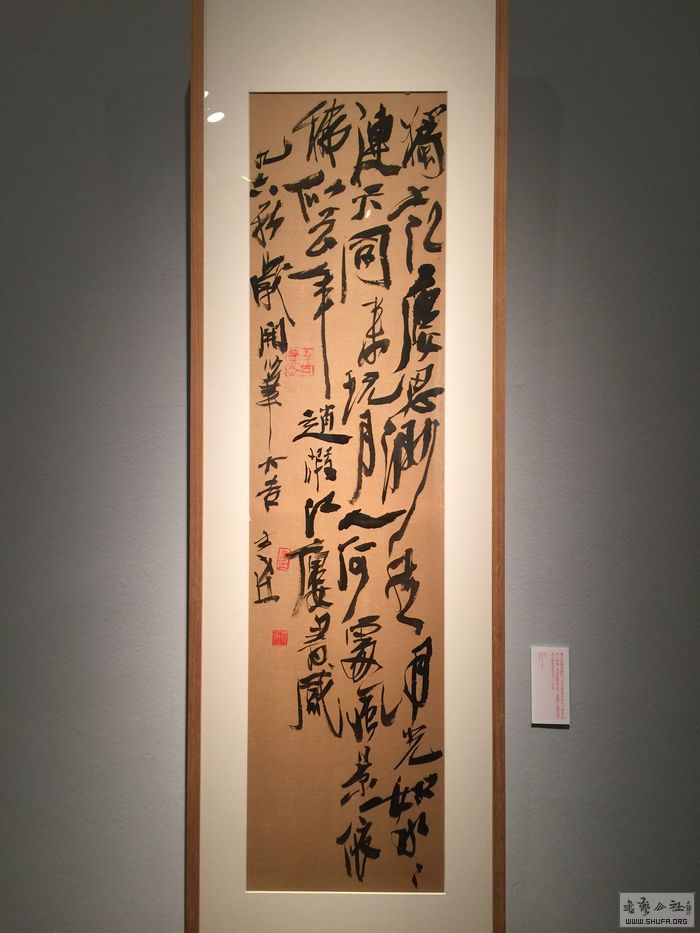 獨上江廔思渺然月光如水〻
連天同来玩月人何處風景依
稀似去年 趙嘏江廔書感
九六新歲開筆大吉
書藝公社
WWW.SHUFA.ORG